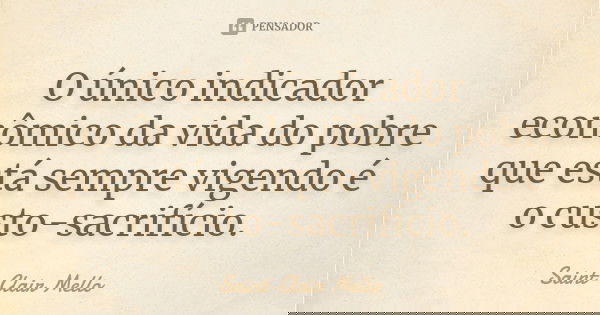 PENSADOR
O único indicador
econômico da vida do pobre
que está sempre vigendo é
o custo-sacrifício.
Saint-Clair Mello